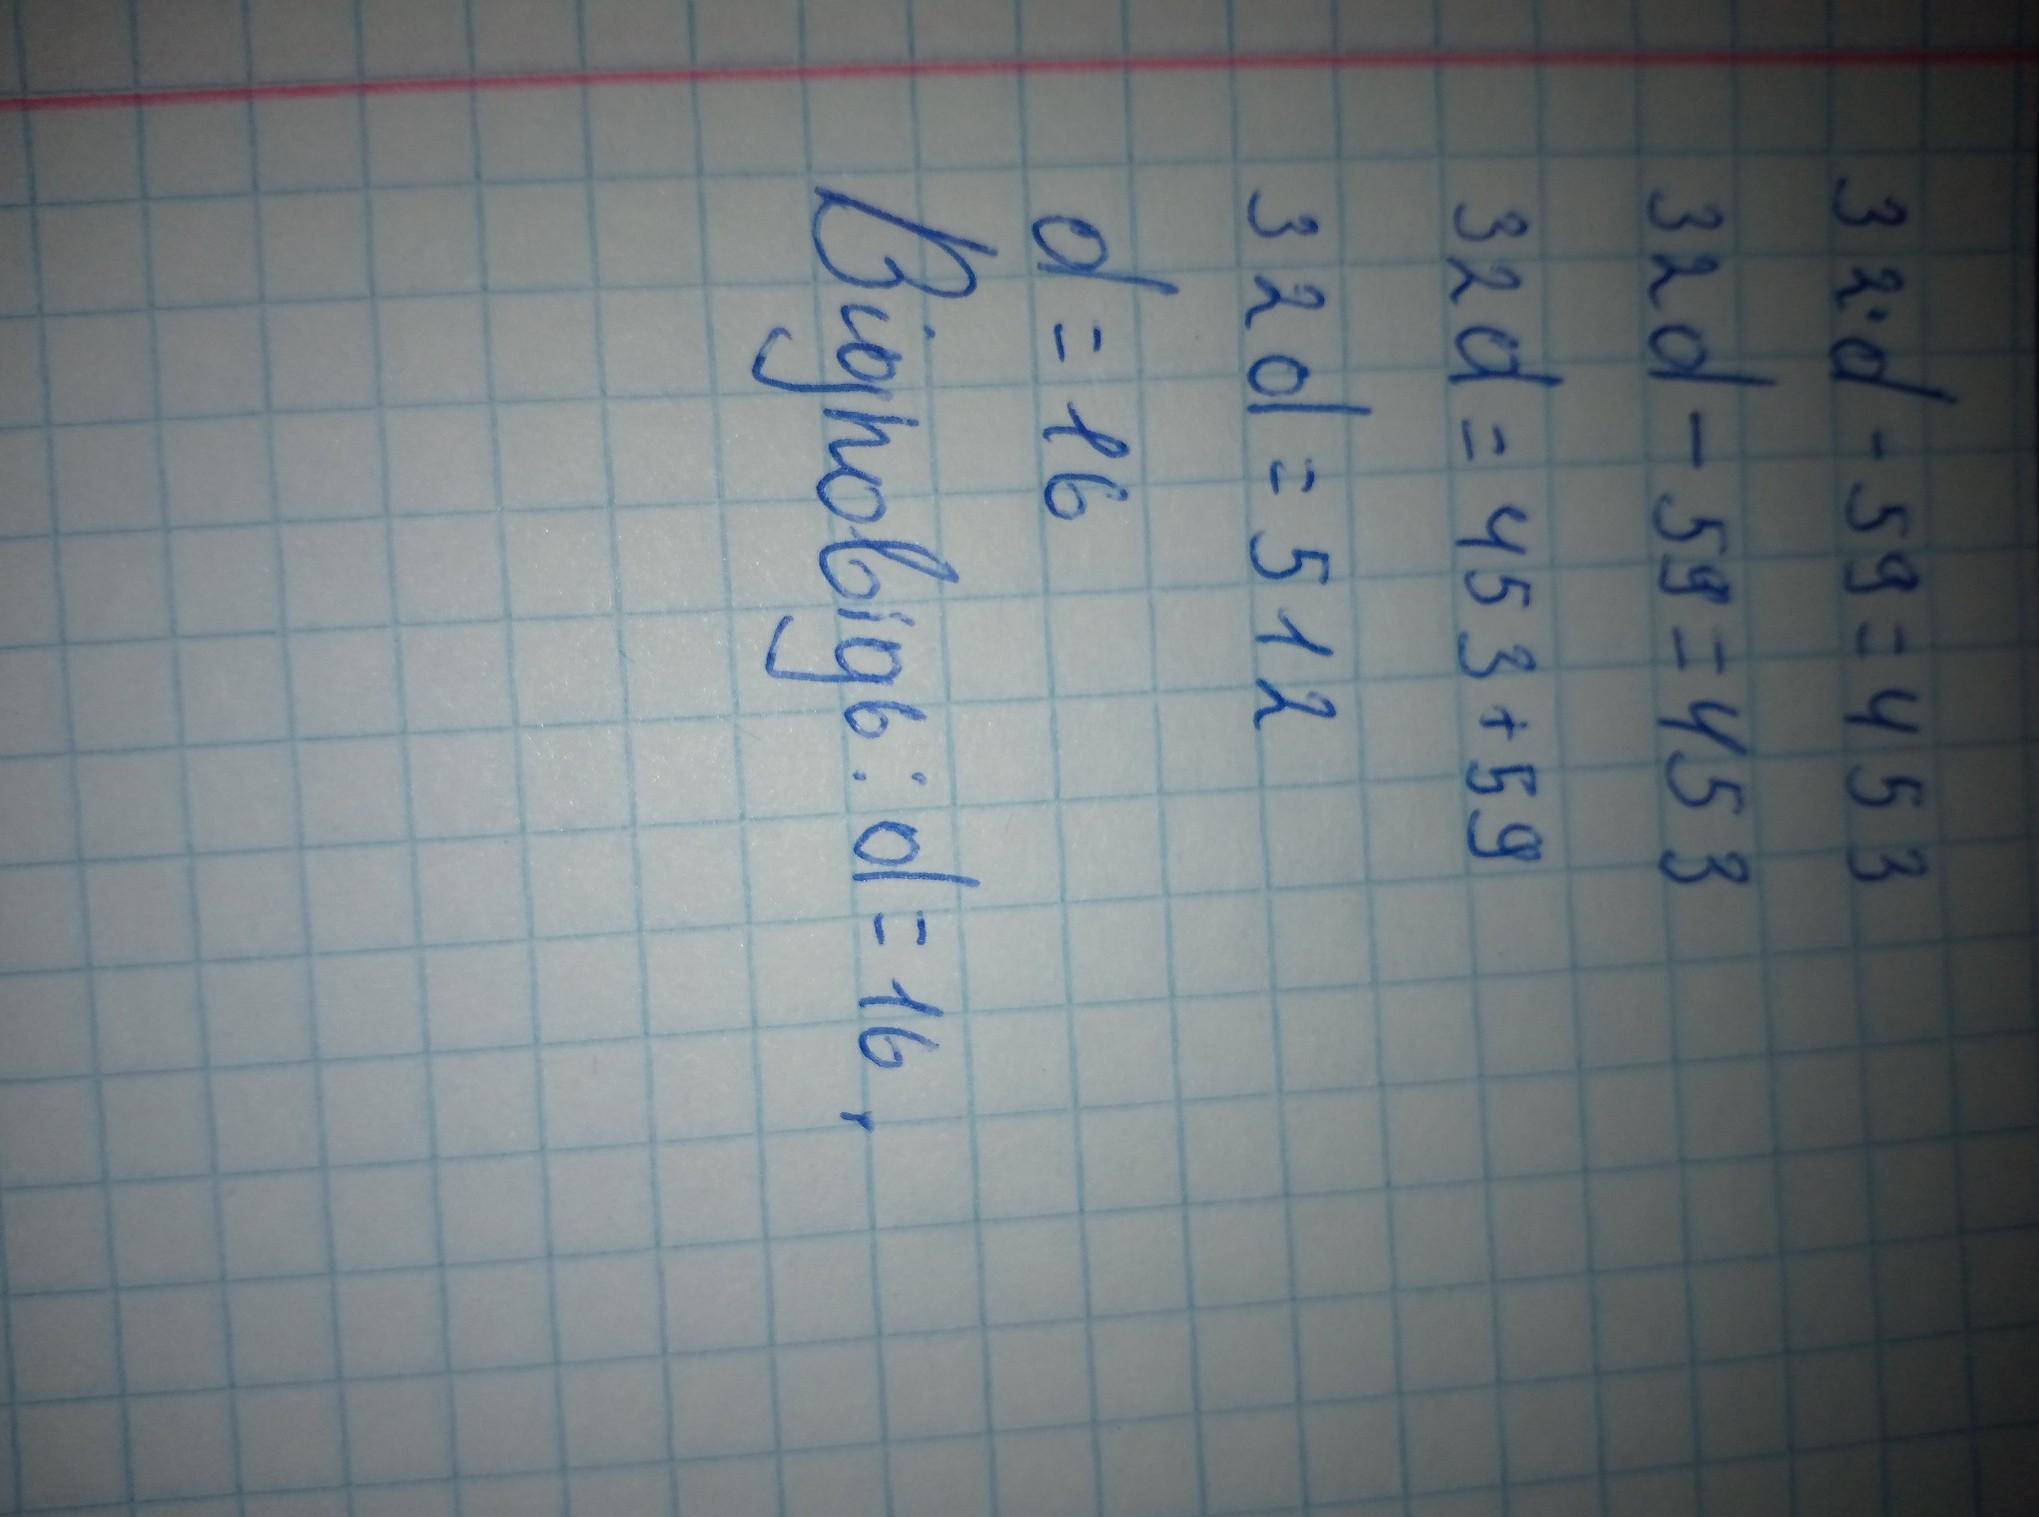 32·d - 59 = 453
32d - 59 = 453
32d = 453 + 59
32d = 512
d = 16
Відповідь: d = 16.